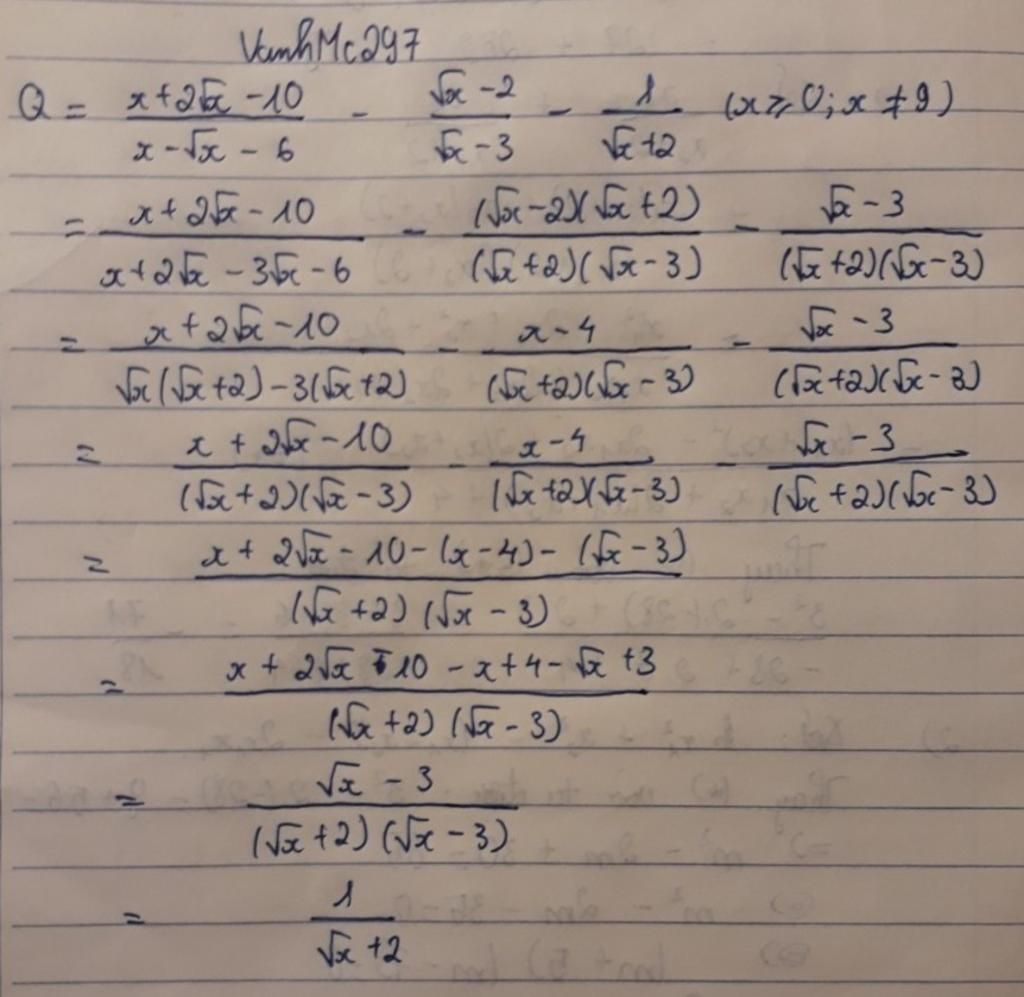 VanhMc297
Q = \frac{x+2\sqrt{x}-10}{x-\sqrt{x}-6} - \frac{\sqrt{x}-2}{\sqrt{x}-3} - \frac{1}{\sqrt{x}+2} (x ≥ 0; x ≠ 9)
= \frac{x+2\sqrt{x}-10}{x+2\sqrt{x}-3\sqrt{x}-6} - \frac{(\sqrt{x}-2)(\sqrt{x}+2)}{(\sqrt{x}+2)(\sqrt{x}-3)} - \frac{\sqrt{x}-3}{(\sqrt{x}+2)(\sqrt{x}-3)}
= \frac{x+2\sqrt{x}-10}{\sqrt{x}(\sqrt{x}+2)-3(\sqrt{x}+2)} - \frac{x-4}{(\sqrt{x}+2)(\sqrt{x}-3)} - \frac{\sqrt{x}-3}{(\sqrt{x}+2)(\sqrt{x}-3)}
= \frac{x+2\sqrt{x}-10}{(\sqrt{x}+2)(\sqrt{x}-3)} - \frac{x-4}{(\sqrt{x}+2)(\sqrt{x}-3)} - \frac{\sqrt{x}-3}{(\sqrt{x}+2)(\sqrt{x}-3)}
= \frac{x+2\sqrt{x}-10-(x-4)-(\sqrt{x}-3)}{(\sqrt{x}+2)(\sqrt{x}-3)}
= \frac{x+2\sqrt{x}-10-x+4-\sqrt{x}+3}{(\sqrt{x}+2)(\sqrt{x}-3)}
= \frac{\sqrt{x}-3}{(\sqrt{x}+2)(\sqrt{x}-3)}
= \frac{1}{\sqrt{x}+2}